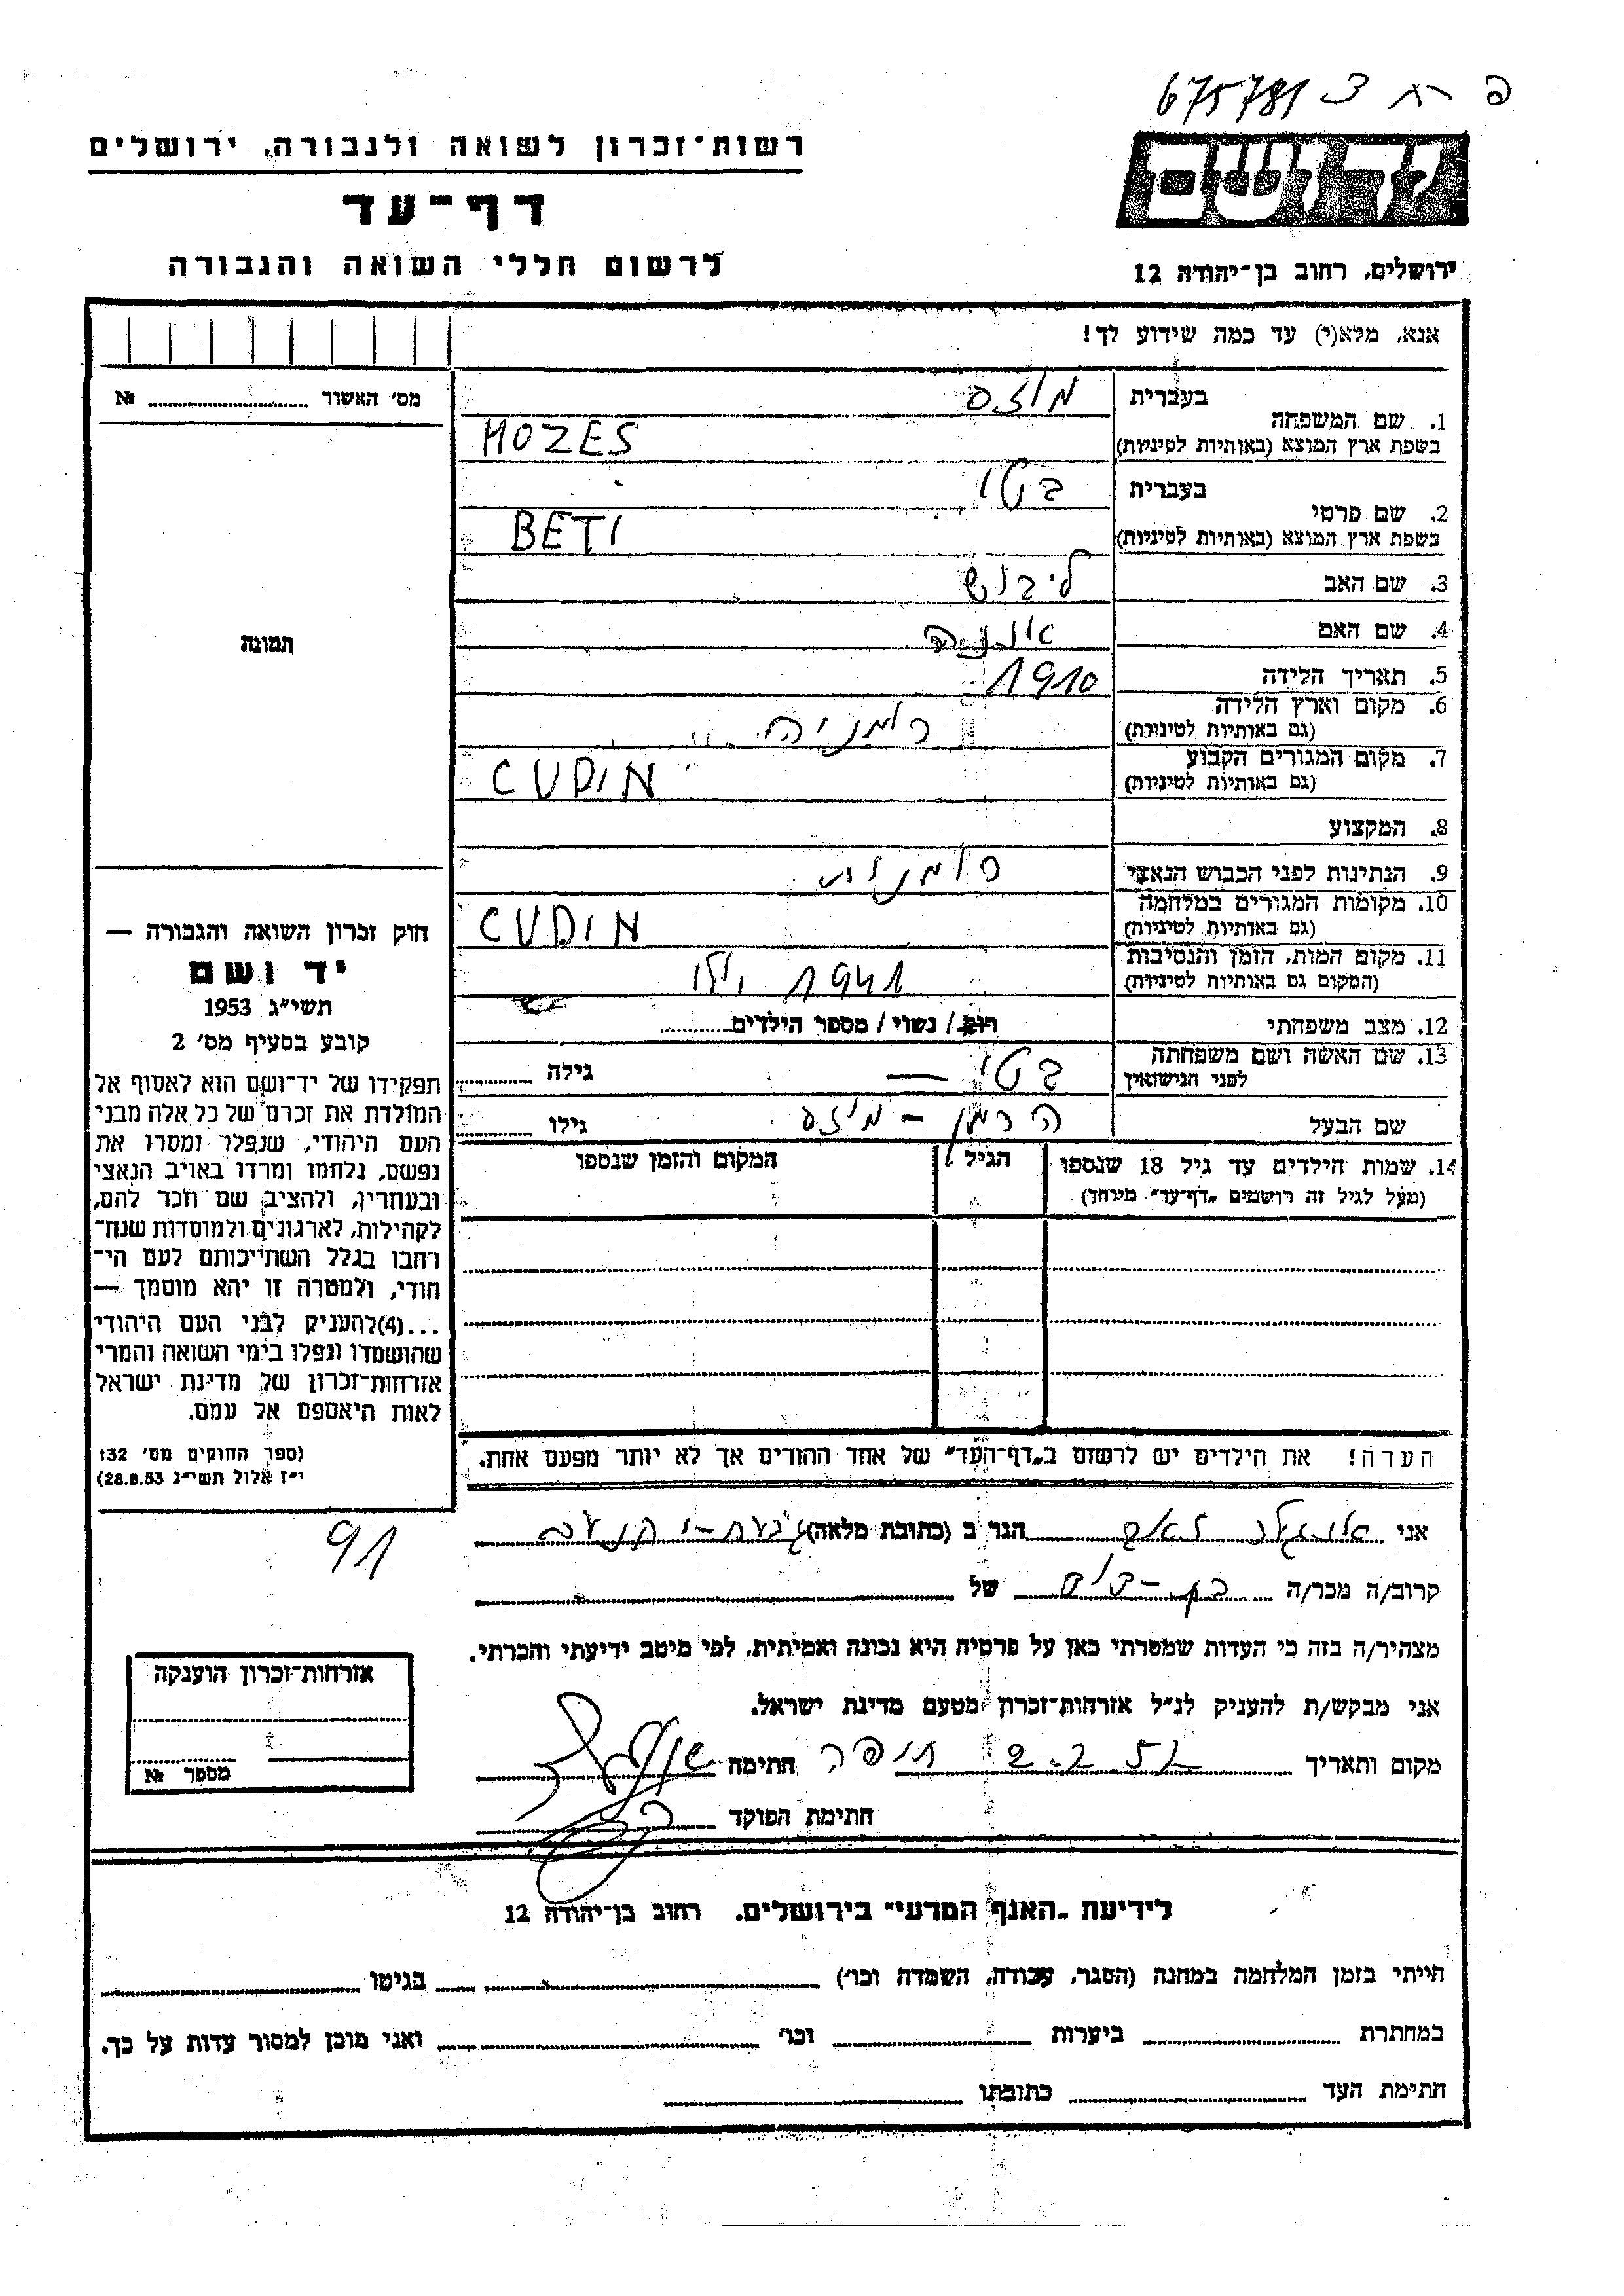 פ ת צ 675781
ידושם
ירושלים, רחוב בן-יהודה 12
רשות-זכרון לשואה ולגבורה, ירושלים
דף-עד
לרשום חללי השואה והגבורה
אנא, מלא(י) עד כמה שידוע לך!
מס׳ האשור ........ №
תמונה
1. שם המשפחה בעברית מוזס
בשפת ארץ המוצא (באותיות לטיניות) MOZES
2. שם פרטי בעברית בטי
בשפת ארץ המוצא (באותיות לטיניות) BETI
3. שם האב ליבוש
4. שם האם
5. תאריך הלידה 1910
6. מקום וארץ הלידה רומניה
(גם באותיות לטיניות)
7. מקום המגורים הקבוע CUDIN
(גם באותיות לטיניות)
8. המקצוע
9. הנתינות לפני הכבוש הנאצי רומנית
10. מקומות המגורים במלחמה CUDIN
(גם באותיות לטיניות)
11. מקום המות, הזמן והנסיבות 1941 יולי
(המקום גם באותיות לטיניות)
12. מצב משפחתי רווק/ נשוי/ מספר הילדים........
13. שם האשה ושם משפחתה בטי — גילה ........
לפני הנישואין
שם הבעל הרמן - מוזס גילו ........
14. שמות הילדים עד גיל 18 שנספו הגיל המקום והזמן שנספו
(מעל לגיל זה רושמים „דף-עד״ מיוחד)
הערה! את הילדים יש לרשום ב„דף-העד״ של אחד ההורים אך לא יותר מפעם אחת.
חוק זכרון השואה והגבורה —
יד ושם
תשי״ג 1953
קובע בסעיף מס׳ 2
תפקידו של יד-ושם הוא לאסוף אל
המולדת את זכרם של כל אלה מבני
העם היהודי, שנפלו ומסרו את
נפשם, נלחמו ומרדו באויב הנאצי
ובעוזריו, ולהציב שם וזכר להם,
לקהילות, לארגונים ולמוסדות שנח-
רבו בגלל השתייכותם לעם הי-
הודי, ולמטרה זו יהא מוסמך —
...(4)להעניק לבני העם היהודי
שהושמדו ונפלו בימי השואה והמרי
אזרחות-זכרון של מדינת ישראל
לאות היאספם אל עמם.
(ספר החוקים מס׳ 132
י״ז אלול תשי״ג 28.8.53)
91
אני הגר ב (כתובת מלאה)
קרוב/ה מכר/ה בן - דוד של
מצהיר/ה בזה כי העדות שמסרתי כאן על פרטיה היא נכונה ואמיתית, לפי מיטב ידיעתי והכרתי.
אני מבקש/ת להעניק לנ״ל אזרחות-זכרון מטעם מדינת ישראל.
מקום ותאריך חיפה חתימה
חתימת הפוקד
אזרחות-זכרון הוענקה
מספר №
לידיעת „האגף המדעי״ בירושלים, רחוב בן-יהודה 12
הייתי בזמן המלחמה במחנה (הסגר, עבודה, השמדה וכו׳) ........ בגיטו ........
במחתרת ........ ביערות ........ וכו׳ ........ ואני מוכן למסור עדות על כך.
חתימת העד ........ כתובתו ........